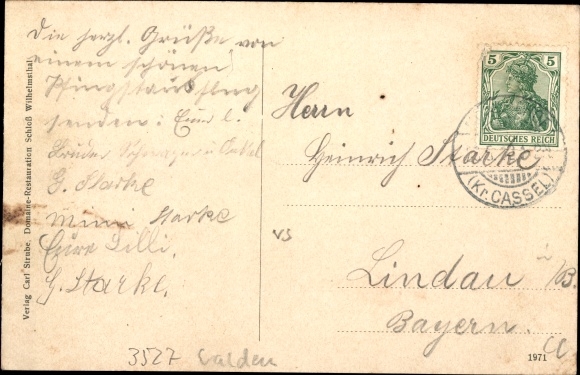 Die herzl. Grüße von
einem schönen
Pfingstausflug
senden: Eure l.
Bruder Schwager u. Onkel
G. Starke
Minna Starke
Eure Lilli.
G. Starke.
Verlag Carl Strube, Domaine-Restauration Schloß Wilhelmsthal
5 5
DEUTSCHES REICH
(Kr. CASSEL)
Herrn
Heinrich Starke
Lindau i/B.
Bayern.
VS
3527 Calden
1971